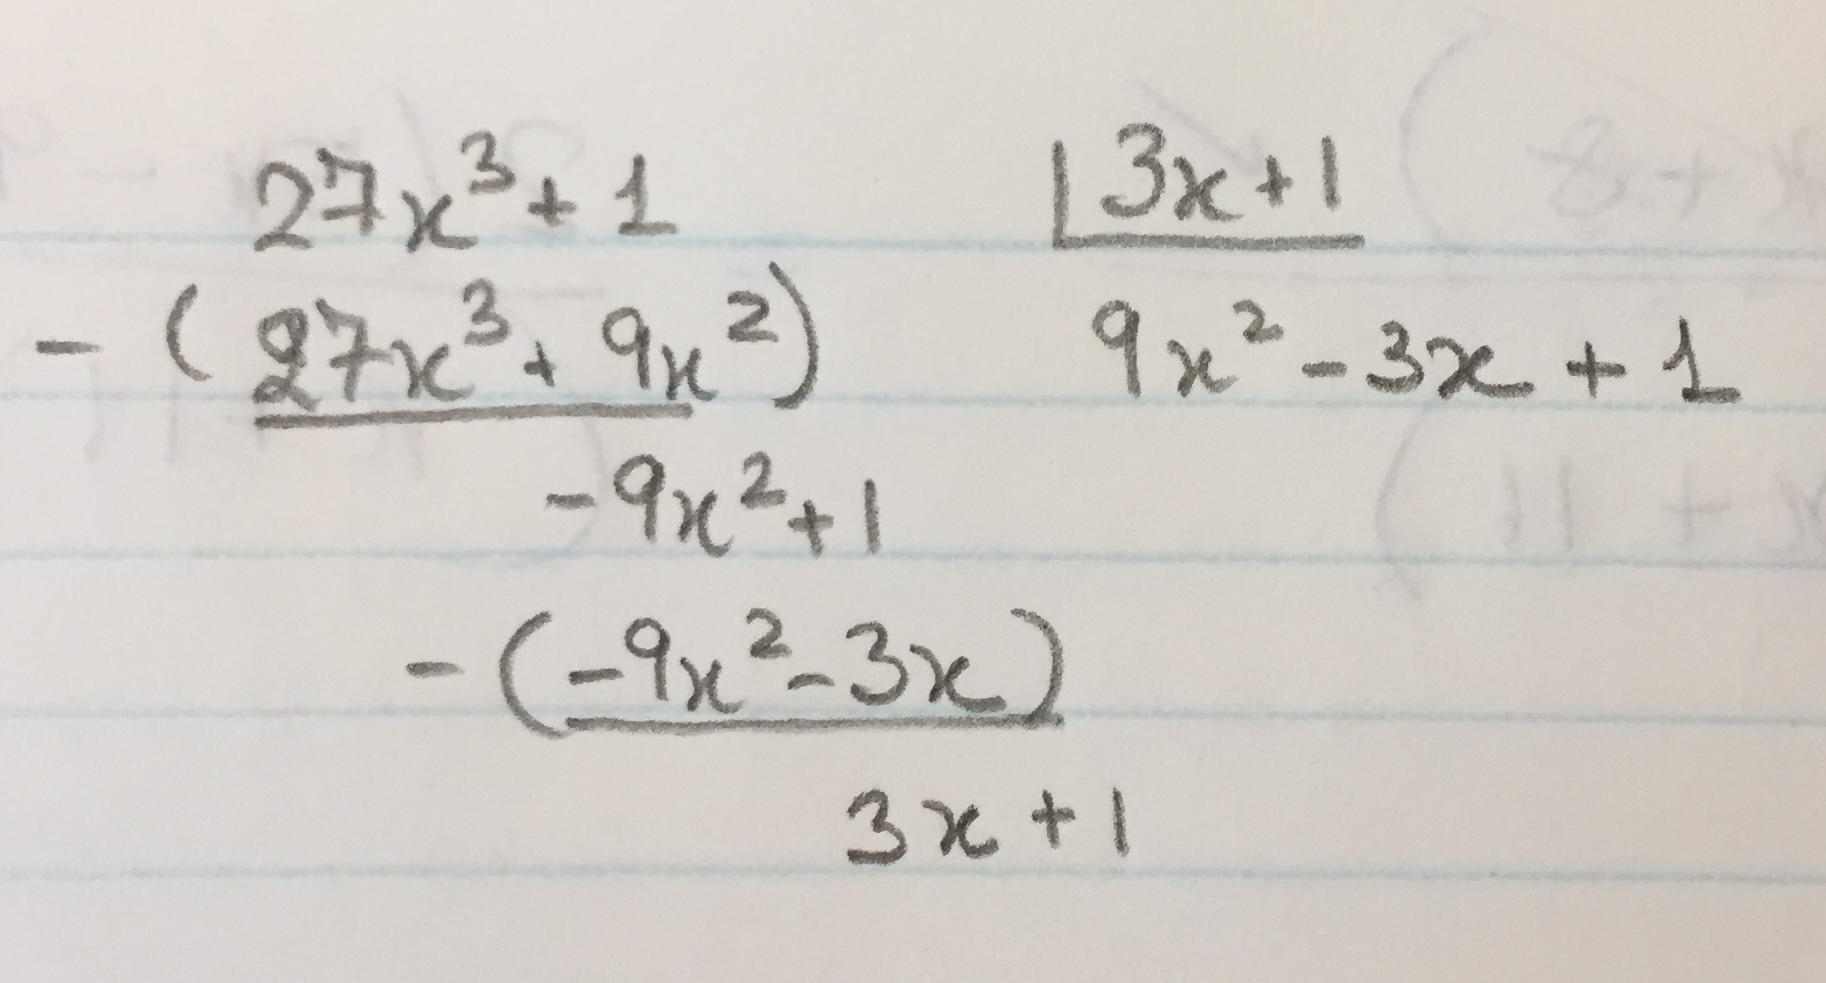 27x³+1 |3x+1
-(27x³+9x²) 9x²-3x+1
-9x²+1
-(-9x²-3x)
3x+1